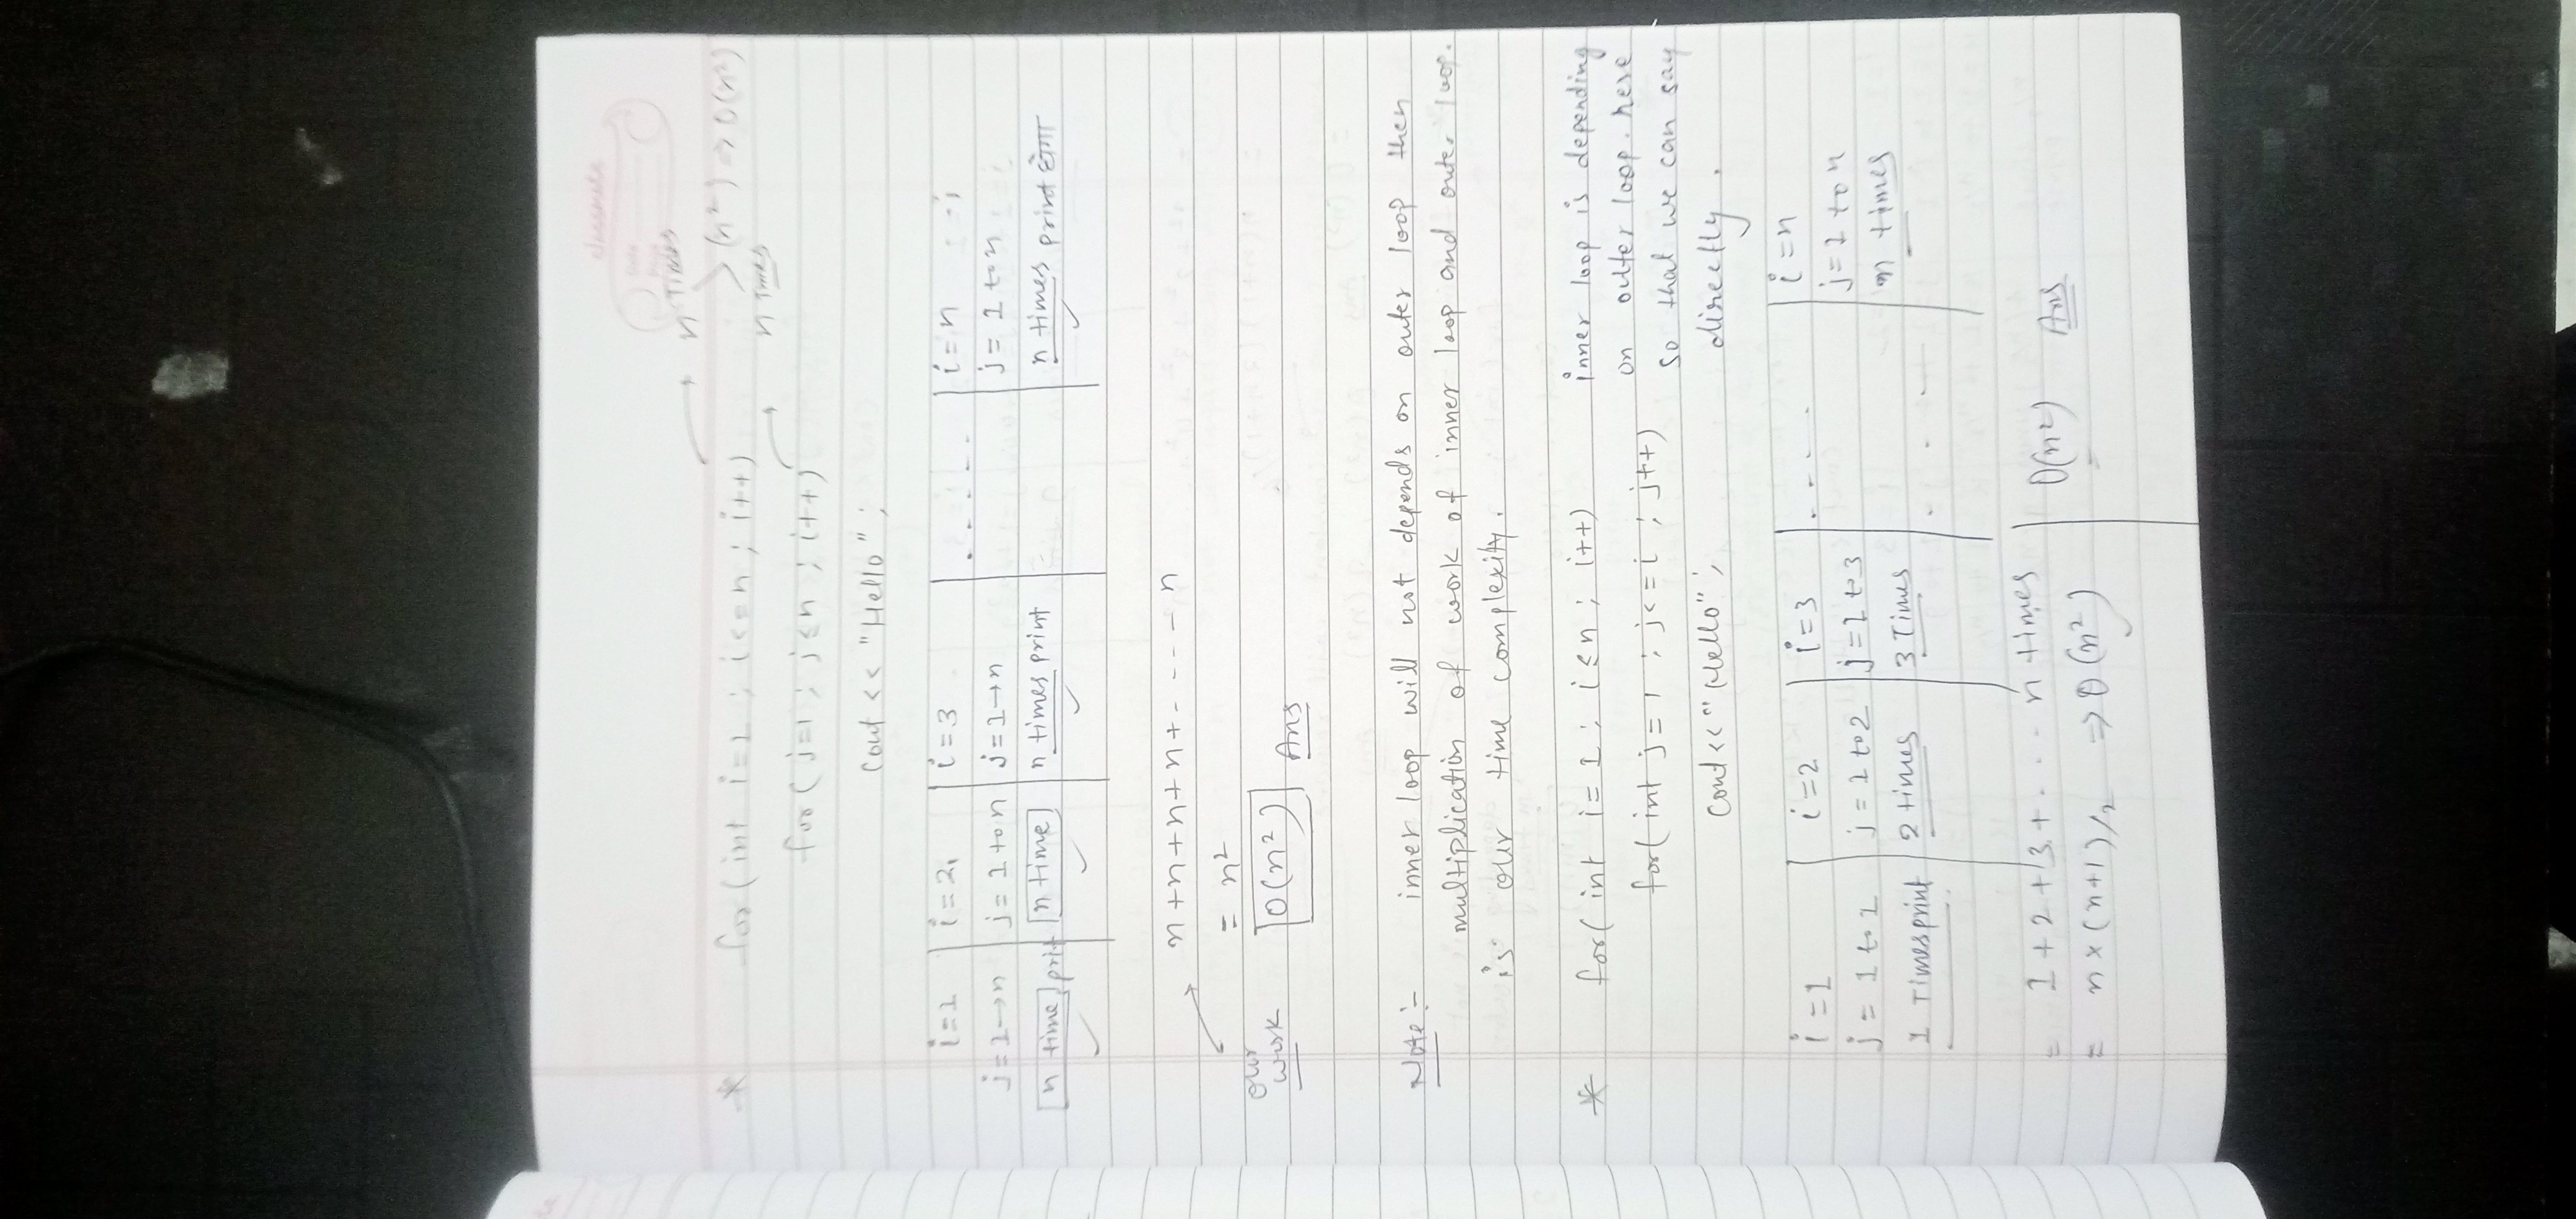 classmate
Date
n Times
* for ( int i=1 ; i<=n ; i++)
> (n²) ⇒ O(n²)
n Times
for ( j=1 ; j≤n ; i++)
cout << "Hello" ;
i=1 | i=2 | i=3 | ..... | i=n
j=1→n | j= 1 to n | j=1→n | j= 1 to n
n time prit | n time | n times print | n times print होगा
n+n+n+n+- - - - - n
= n²
our
work
O(n²) Ans
Note :- inner loop will not depends on outer loop then
multiplication of work of inner loop and outer loop.
is our time complexity.
* for( int i= 1 ; i≤n ; i++) inner loop is depending
for( int j= 1 ; j<=i ; j++) on outter loop. here
so that we can say
cout<<"Hello" ; directly.
i=1 | i=2 | i=3 | .... | i=n
j= 1 to 1 | j=1 to 2 | j=1 to 3 | j=1 to n
1 Times print | 2 times | 3 Times | . . - | n times
= 1+2+3+ . . .. n times | O(n²) Ans
= n×(n+1)/2 ⇒ O(n²)